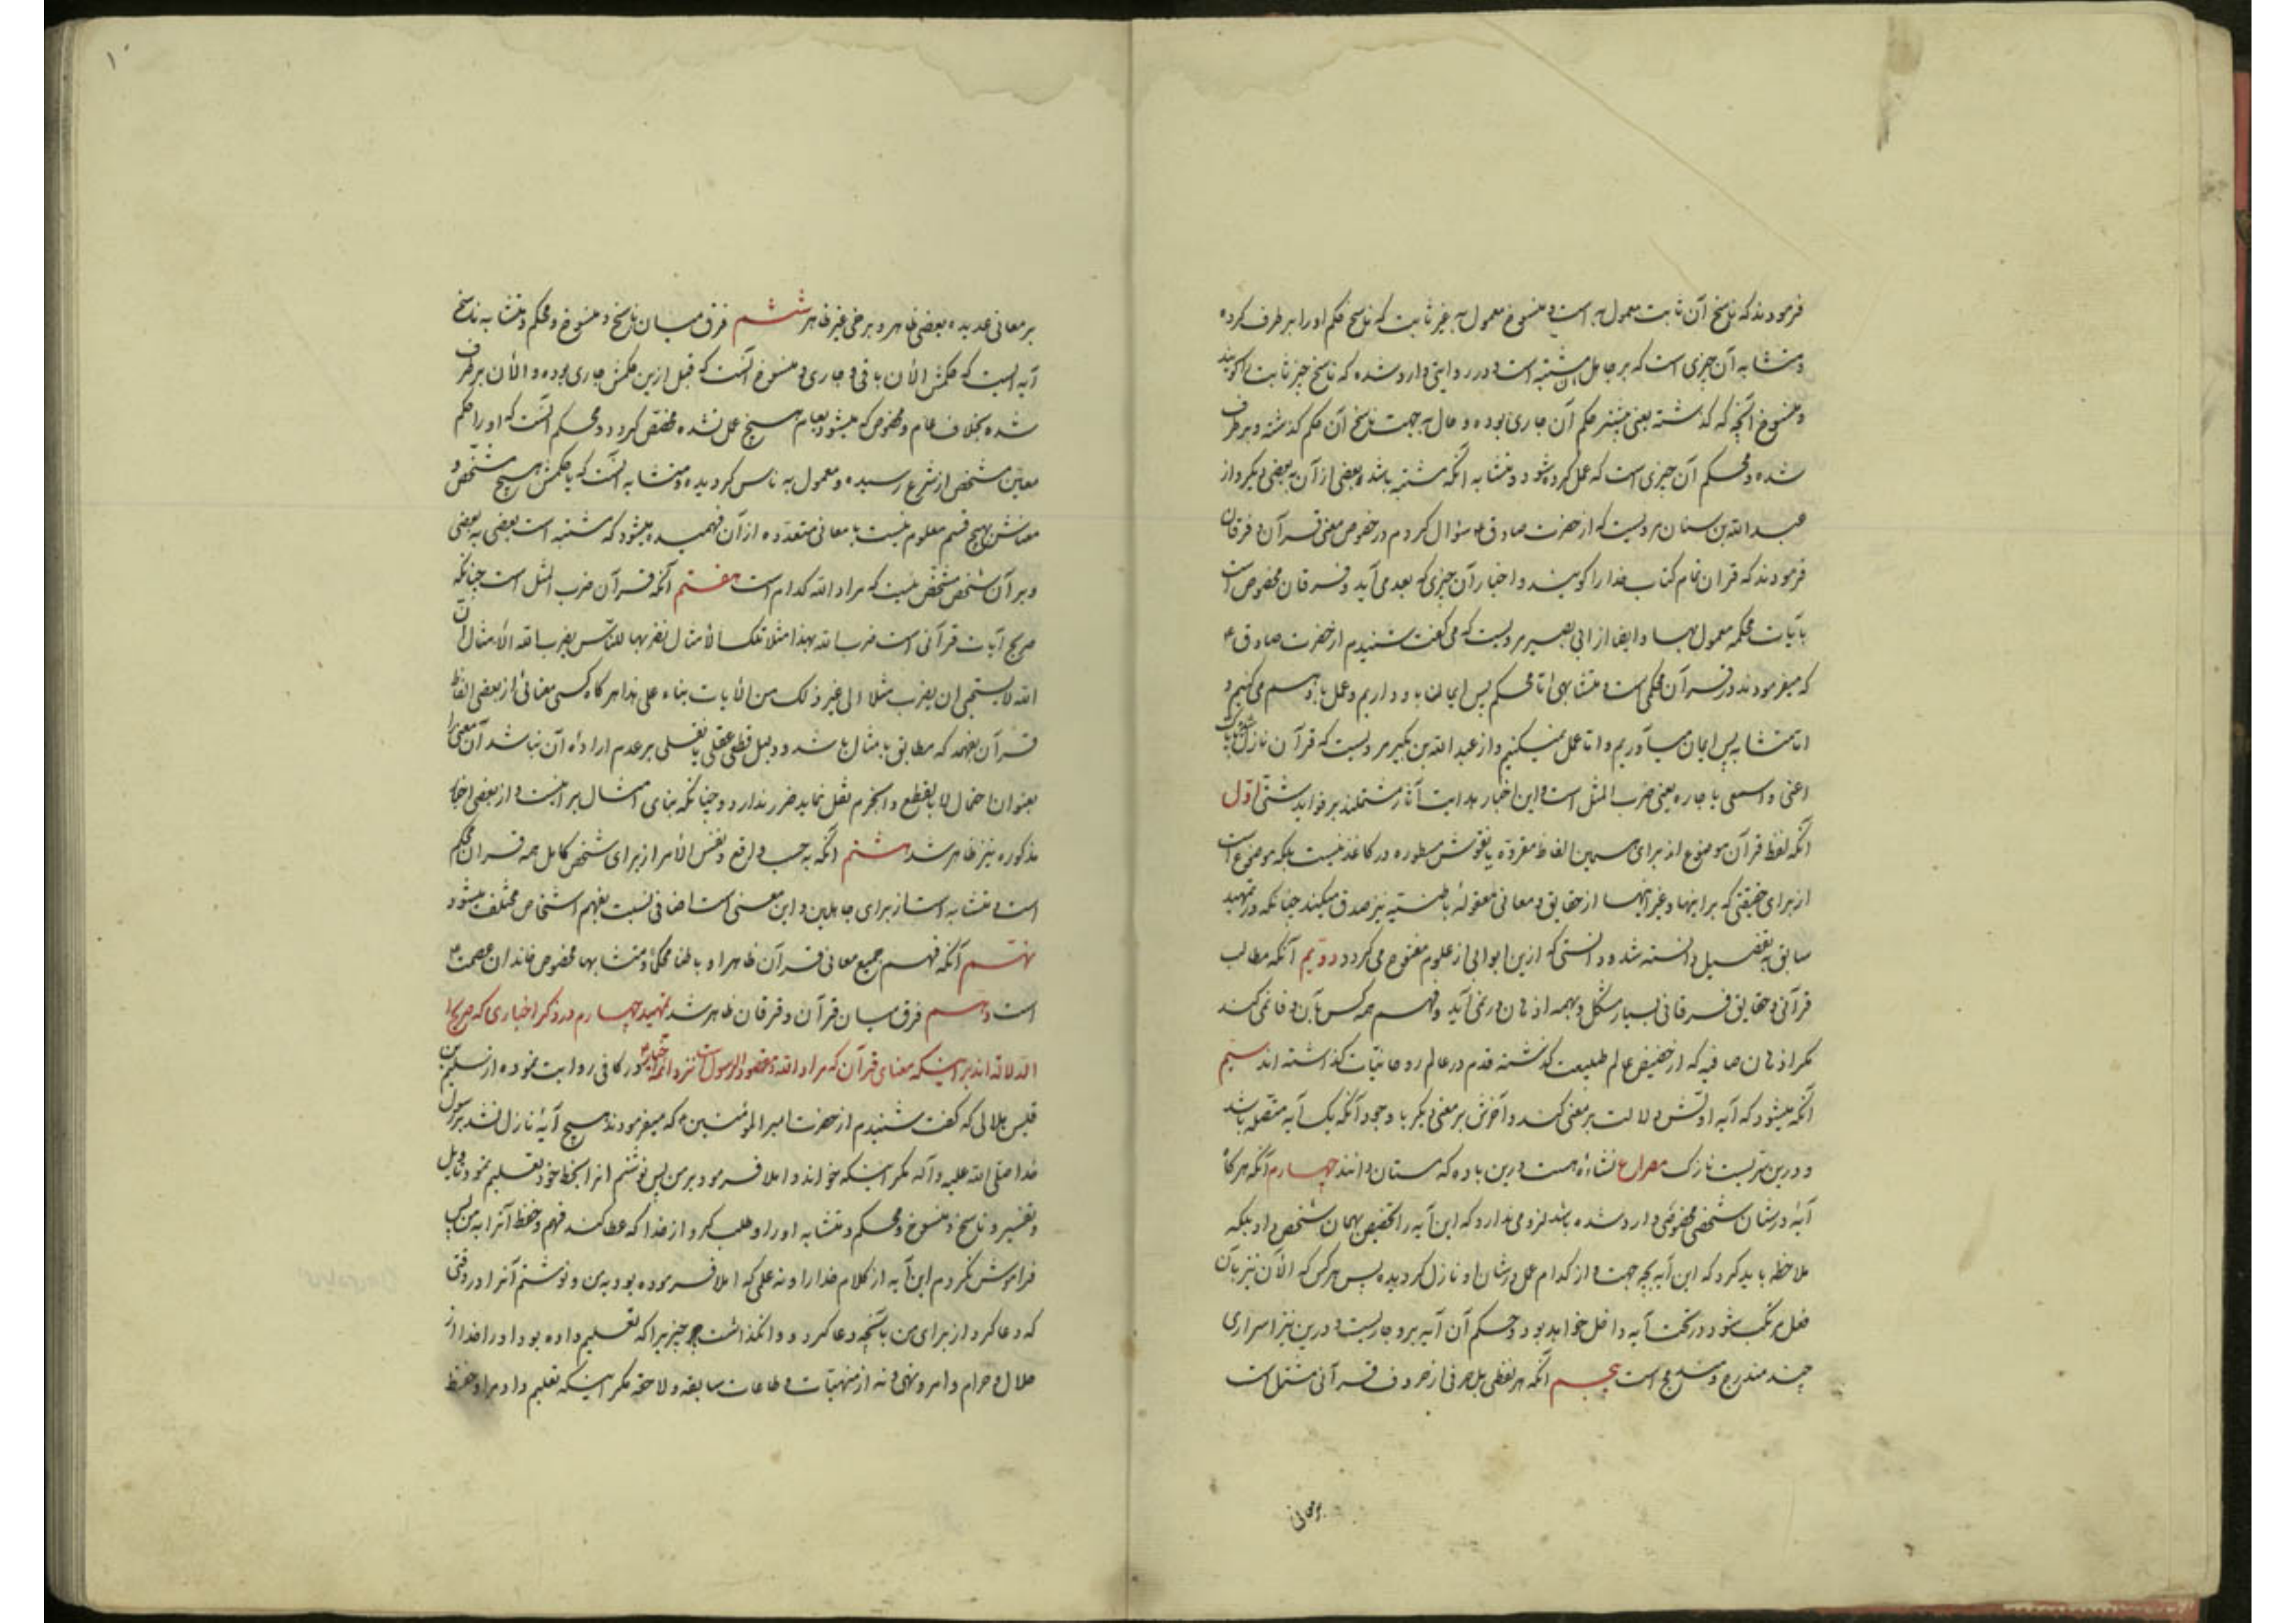 فرمودند که ناسخ آن ثابت معمول به است و منسوخ معمول به غیر ثابت که ناسخ حکم او را برطرف کرده
و متشابه آن چیزی است که بر جاهل مشتبه است و در روایتی وارد شده که ناسخ چیز ثابت را گویند
و منسوخ آنچه که گذشته یعنی پیشتر حکم آن جاری بوده و حال به جهت ناسخ آن حکم گذشته و برطرف
شده و محکم آن چیزی است که عمل کرده شود و متشابه آنکه مشتبه باشد بعضی از آن به بعضی دیگر و از
عبد الله بن سنان مرویست که از حضرت صادق ع سؤال کردم در خصوص معنی قرآن و فرقان
فرمودند که قران تمام کتاب خدا را گویند و اخبار آن چیزی که بعد می آید و فرقان مخصوص است
بآیات محکمه معمول بها و ایضا از ابی بصیر مرویست که می گفت شنیدم از حضرت صادق ع
که میفرمودند در قرآن محکمی است و متشابهی اما محکم پس ایمان باو داریم و عمل باو هم می کنیم و
اما متشابه پس ایمان میآوریم و اما عمل نمیکنیم و از عبد الله بن بکیر مرویست که قرآن نازل شده باياک
اعنی و اسمعی یا جاره یعنی ضرب المثل است و این اخبار هدایت آثار مشتملند بر فواید شتی اول
آنکه لفظ قرآن موضوع از برای همین الفاظ مقروّه یا نقوش مسطوره در کاغذ نیست بلکه موضوع است
از برای حقیقتی که بر اینها و غیر اینها از حقایق و معانی معقولهٔ باطنیه نیز صدق میکند چنانکه در تمهید
سابق بتفصیل دانسته شد و دانستی که ازین ابوابی از علوم مفتوح می گردد دویم آنکه مطالب
قرآنی و حقایق فرقانی بسیار مشکل و بهمه اذهان در نمی آید و فهم همه کس بآن وفا نمی کند
مگر اذهان صافیه که از حضیض عالم طبیعت گذشته قدم در عالم روحانیات گذاشته اند سیّم
آنکه میشود که آیه اوّلش دلالت بر معنی کند و آخرش بر معنی دیگر با وجود آنکه یک آیه متصله باشد
و درین سرّیست نازک مصراع نشاءه هست درین باده که مستان دانند چهارم آنکه هرگاه
آیهٔ در شان شخصی مخصوصی وارد شده باشد لزومی ندارد که این آیه را تخصیص بهمان شخص داد بلکه
ملاحظه باید کرد که این آیه بچه جهت و از کدام عمل در شان او نازل گردیده پس هر کس که الآن نیز بآن
فعل مرتکب شود در تحت آیه داخل خواهد بود و حکم آن آیه برو جاریست و درین نیز اسراری
چند مندرج و مندمج است پنجم آنکه هر لفظی بل حرفی از حروف قرآنی مشتمل است
بر معانی
بر معانی عدیده بعضی ظاهر و برخی غیر ظاهر ششم فرق میان ناسخ و منسوخ و محکم و متشابه ناسخ
آیه ایست که حکمش الأن باقی و جاری و منسوخ آنست که قبل ازین حکمش جاری بوده و الأن برطرف
شده بخلاف عام و مخصوص که میشود بعام هیچ عمل نشده مخصّص گردد و محکم آنست که او را حکم
معیّن مشخص از شرع رسیده و معمول به ناس گردیده و متشابه آنست که یا حکمش هیچ مشخص و
معنایش بهیچ قسم معلوم نیست یا معانی متعدده از آن فهمیده میشود که مشتبه است بعضی به بعضی
و بر آن شخص مشخص نیست که مراد الله کدام است هفتم آنکه قرآن ضرب المثل است چنانکه
صریح آیات قرآنی است ضرب الله بهذا مثلا تلک الأمثال نضربها للناس یضرب الله الأمثال انّ
الله لا یستحیی ان یضرب مثلا الی غیر ذلک من الأیات بناء علی هذا هرگاه کسی معنائی از بعضی الفاظ
قرآن بفهمد که مطابق با مثال باشد و دلیل قطعی عقلی یا نقلی بر عدم ارادهٔ آن نباشد آن معنی را
بعنوان احتمال لا بالقطع و الجزم نقل نماید ضرر ندارد و چنانکه بنای امثال بر اینست و از بعضی اخبار
مذکوره نیز ظاهر شد هشتم آنکه به حسب واقع و نفس الأمر از برای شخص کامل همه قران محکم
است و متشابه است از برای جاهلین و این معنی است اضافی نسبت بفهم اشخاص مختلف میشود
نهم آنکه فهم جمیع معانی قرآن ظاهرا و باطنا محکما و متشابها مخصوص خاندان عصمت
است دهم فرق میان قرآن و فرقان ظاهر شد تمهید چهارم در ذکر اخباری که صریح
الدلاله اند بر اینکه معنای قرآن که مراد الله و مقصود الرسول است نزد ائمه در کافی روایت نموده از سلیم بن
قیس هلالی که گفت شنیدم از حضرت امیر المؤمنین ع که میفرمودند هیچ آیهٔ نازل نشد بر رسول
خدا صلی الله علیه و آله مگر اینکه خواند و املا فرمود بر من پس نوشتم انرا بخط خود و تعلیم نمود تاویل
و تفسیر و ناسخ و منسوخ و محکم و متشابه او را و طلب کرد از خدا که عطا کند فهم و حفظ آنرا به من پس
فراموش نکردم این آیه از کلام خدا را و نه علمی که املا فرموده بود بمن و نوشتم آنرا در وقتی
که دعا کرد از برای من بآنچه دعا کرد و وا نگذاشت چیزیرا که تعلیم داده بود او را خدا از
حلال و حرام و امر و نهی و نه از منهیّات و طاعات سابقه و لاحقه مگر اینکه تعلیم داد مرا و حفظ